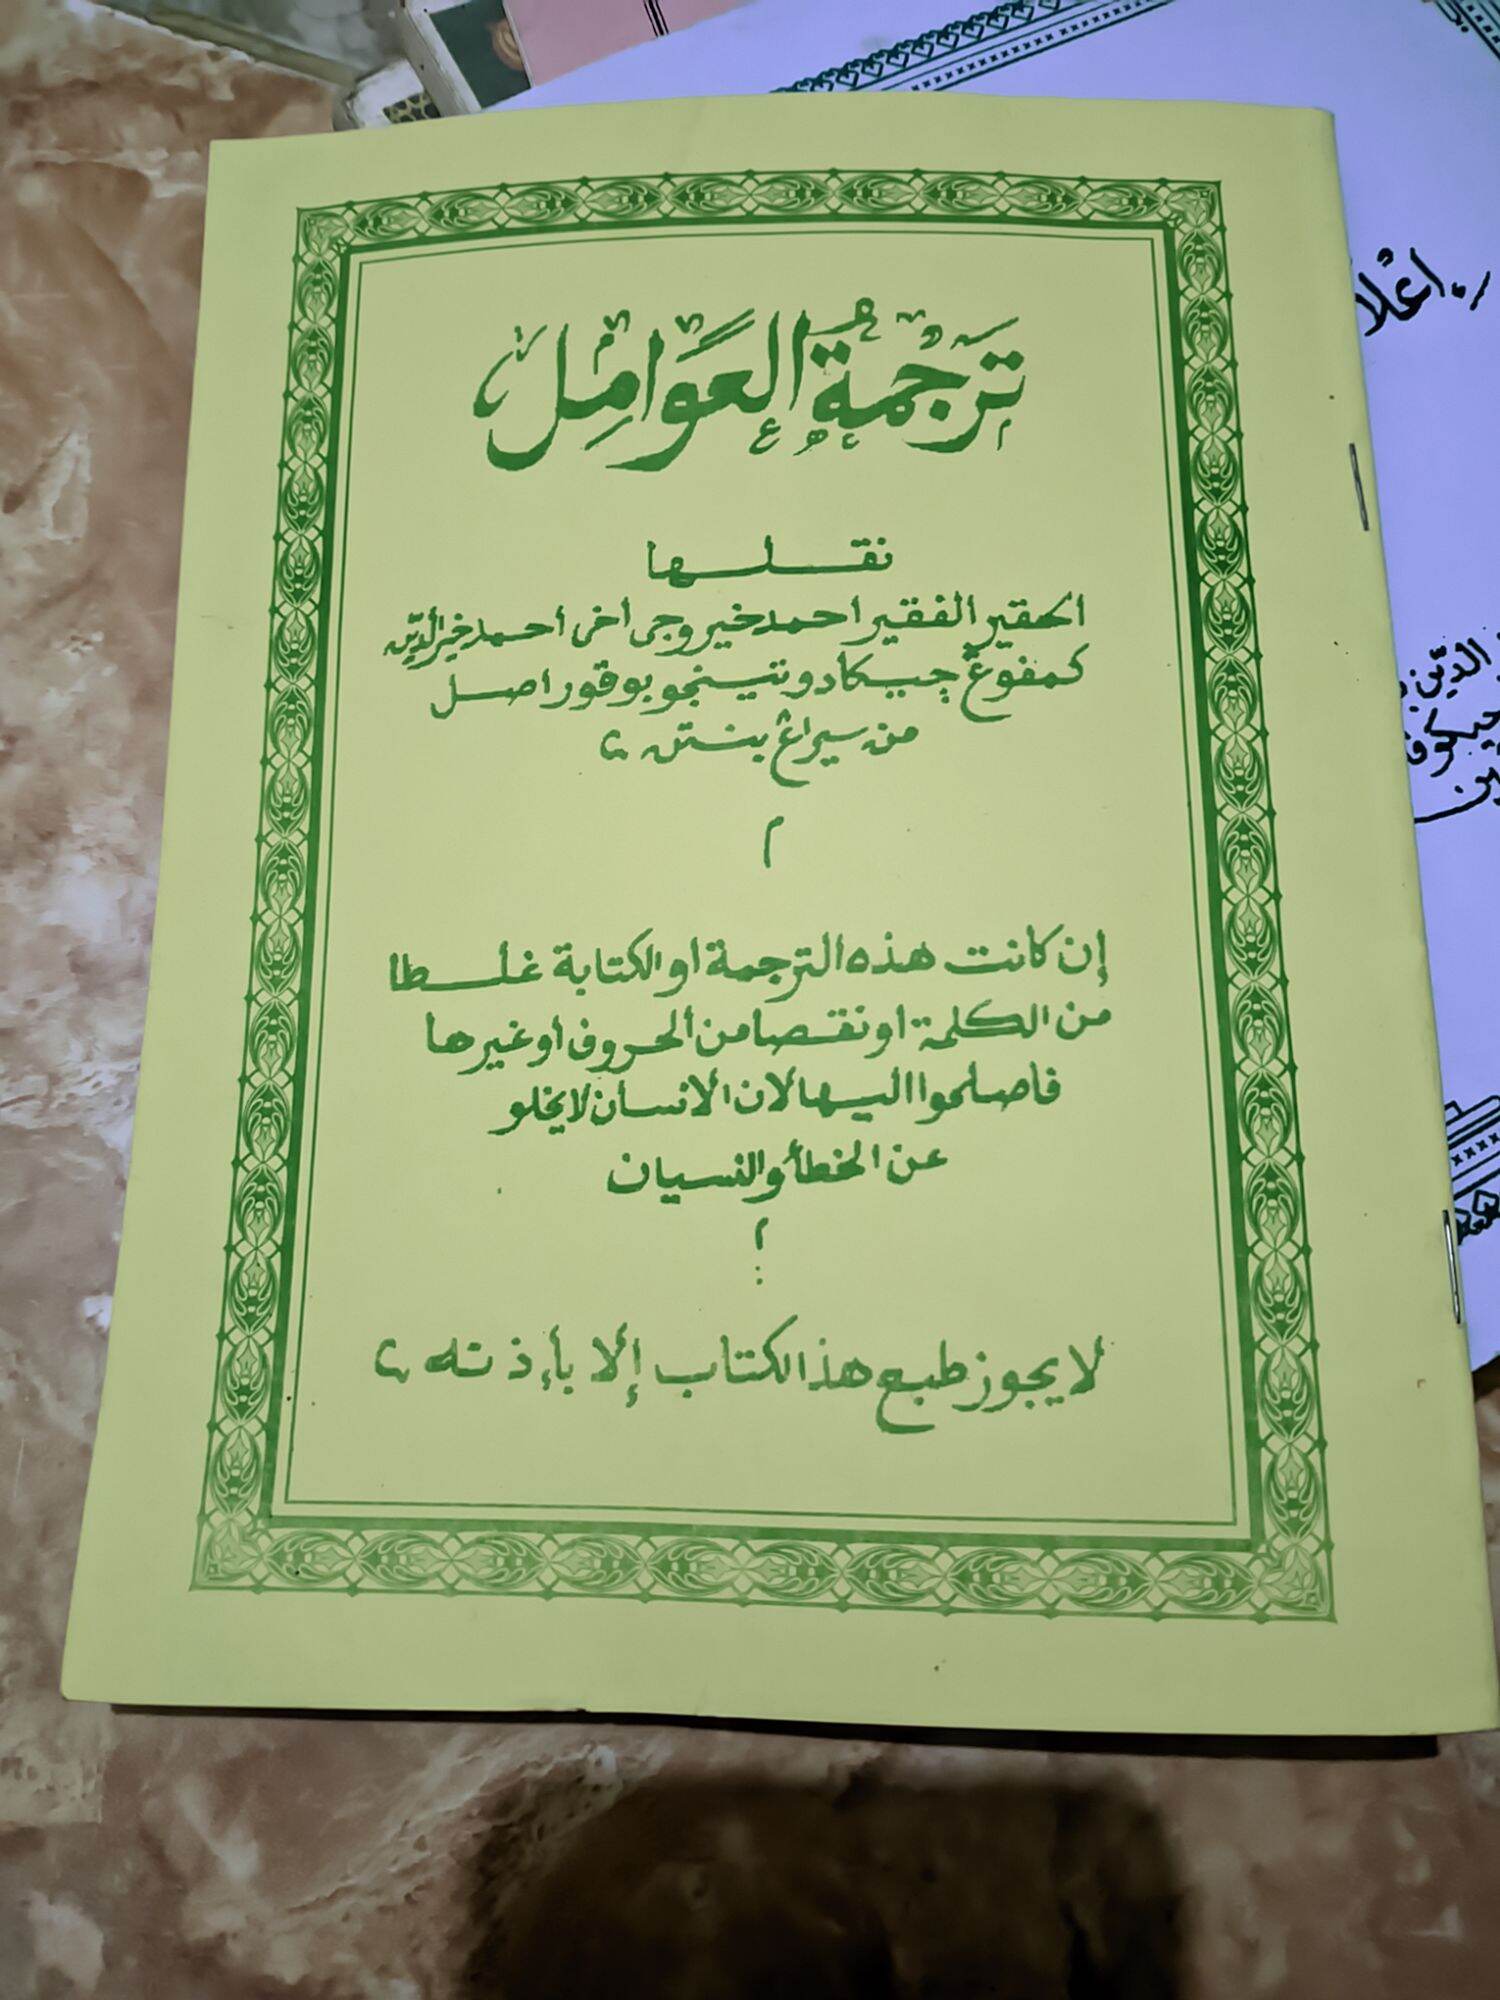 تَرْجُمَةُ الْعَوَامِلِ
نقلها
الحقير الفقير احمد خير وجى أخى أحمد خير الدّين
كمفوڠ جيكادو نتينجو بوقور اصل
من سيراڠ بنتن
م
إن كانت هذه الترجمة او الكتابة غلطا
من الكلمة او نقصا من الحروف او غيرها
فاصلحوا اليها لان الانسان لا يخلو
عن الخطأ والنسيان
م
لا يجوز طبع هذالكتاب إلا بأإذنه
إعلا
الدّين